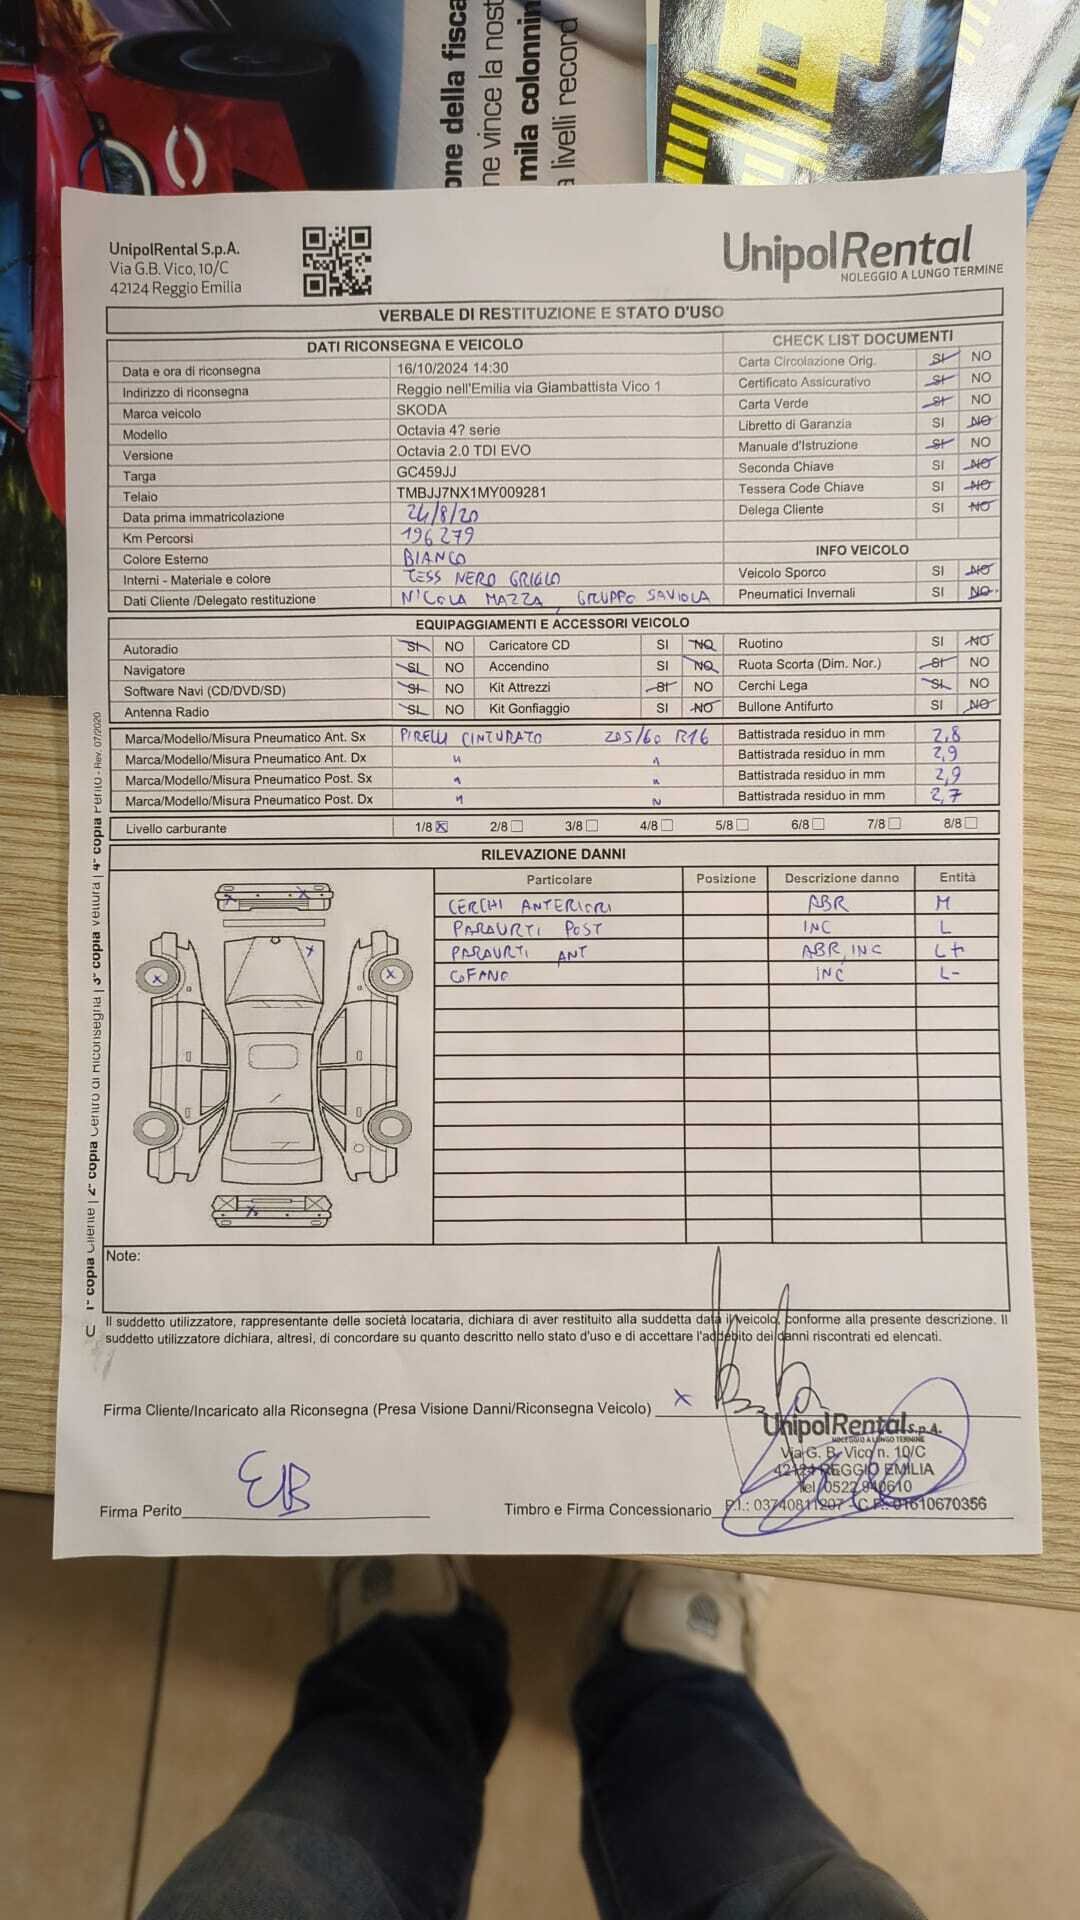 one della fisca
ne vince la nost
mila colonnin
a livelli record
UnipolRental S.p.A.
Via G.B. Vico, 10/C
42124 Reggio Emilia
UnipolRental
NOLEGGIO A LUNGO TERMINE
VERBALE DI RESTITUZIONE E STATO D'USO
DATI RICONSEGNA E VEICOLO
CHECK LIST DOCUMENTI
Data e ora di riconsegna 16/10/2024 14:30
Carta Circolazione Orig. SI NO
Indirizzo di riconsegna Reggio nell'Emilia via Giambattista Vico 1
Certificato Assicurativo SI NO
Marca veicolo SKODA
Carta Verde SI NO
Modello Octavia 4? serie
Libretto di Garanzia SI NO
Versione Octavia 2.0 TDI EVO
Manuale d'Istruzione SI NO
Targa GC459JJ
Seconda Chiave SI NO
Telaio TMBJJ7NX1MY009281
Tessera Code Chiave SI NO
Data prima immatricolazione 24/8/20
Delega Cliente SI NO
Km Percorsi 196279
Colore Esterno BIANCO
INFO VEICOLO
Interni - Materiale e colore TESS NERO GRIGIO
Veicolo Sporco SI NO
Dati Cliente /Delegato restituzione NICOLA MAZZA, GRUPPO SAVIOLA
Pneumatici Invernali SI NO
EQUIPAGGIAMENTI E ACCESSORI VEICOLO
Autoradio SI NO Caricatore CD SI NO Ruotino SI NO
Navigatore SI NO Accendino SI NO Ruota Scorta (Dim. Nor.) SI NO
Software Navi (CD/DVD/SD) SI NO Kit Attrezzi SI NO Cerchi Lega SI NO
Antenna Radio SI NO Kit Gonfiaggio SI NO Bullone Antifurto SI NO
Marca/Modello/Misura Pneumatico Ant. Sx PIRELLI CINTURATO 205/60 R16 Battistrada residuo in mm 2,8
Marca/Modello/Misura Pneumatico Ant. Dx " " Battistrada residuo in mm 2,9
Marca/Modello/Misura Pneumatico Post. Sx " " Battistrada residuo in mm 2,9
Marca/Modello/Misura Pneumatico Post. Dx " " Battistrada residuo in mm 2,7
Livello carburante 1/8 2/8 3/8 4/8 5/8 6/8 7/8 8/8
RILEVAZIONE DANNI
Particolare Posizione Descrizione danno Entità
CERCHI ANTERIORI ABR M
PARAURTI POST INC L
PARAURTI ANT ABR, INC L+
COFANO INC L-
Note:
1° copia Cliente | 2° copia Centro di Riconsegna | 3° copia Vettura | 4° copia Perito - Rev. 07/2020
Il suddetto utilizzatore, rappresentante delle società locataria, dichiara di aver restituito alla suddetta data il veicolo, conforme alla presente descrizione. Il
suddetto utilizzatore dichiara, altresì, di concordare su quanto descritto nello stato d'uso e di accettare l'addebito dei danni riscontrati ed elencati.
Firma Cliente/Incaricato alla Riconsegna (Presa Visione Danni/Riconsegna Veicolo) x
UnipolRental S.p.A.
NOLEGGIO A LUNGO TERMINE
Via G. B. Vico n. 10/C
42124 REGGIO EMILIA
Tel. 0522.940610
P.I.: 03740811207 - C.F.: 01610670356
Firma Perito EB
Timbro e Firma Concessionario